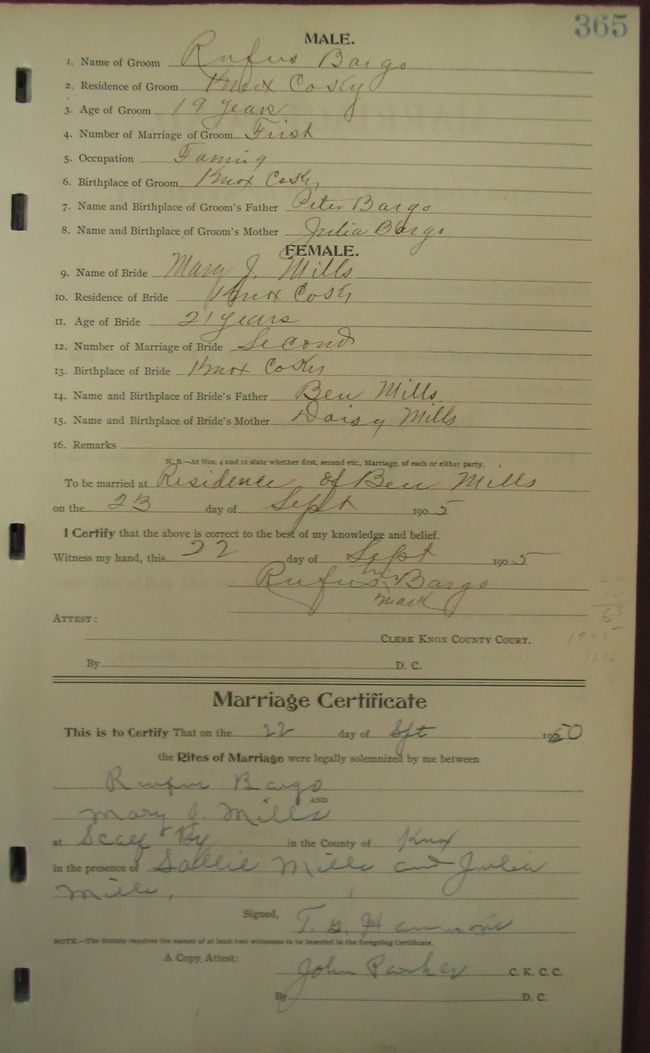 365
MALE.
1. Name of Groom Rufus Bargo
2. Residence of Groom Knox Co Ky
3. Age of Groom 19 years
4. Number of Marriage of Groom First
5. Occupation Faming
6. Birthplace of Groom Knox Co Ky
7. Name and Birthplace of Groom's Father Peter Bargo
8. Name and Birthplace of Groom's Mother Julia Bargo
FEMALE.
9. Name of Bride Mary J. Mills
10. Residence of Bride Knox Co Ky
11. Age of Bride 21 years
12. Number of Marriage of Bride Second
13. Birthplace of Bride Knox Co Ky
14. Name and Birthplace of Bride's Father Ben Mills
15. Name and Birthplace of Bride's Mother Daisy Mills
16. Remarks
N. B.—At Nos. 4 and 12 state whether first, second etc., Marriage, of each or either party.
To be married at Residence of Ben Mills
on the 23 day of Sept 1905
I Certify that the above is correct to the best of my knowledge and belief.
Witness my hand, this 22 day of Sept 1905
Rufus Bargo
mark
ATTEST:
CLERK KNOX COUNTY COURT.
By D. C.
Marriage Certificate
This is to Certify That on the 22 day of Spt 190
the Rites of Marriage were legally solemnized by me between
Rufus Bargo
AND
Mary J. Mills
at Scalf Ky in the County of Knox
in the presence of Sallie Mills and Julia
Mills.
Signed, T. G. Hammons
NOTE.—The Statute requires the names of at least two witnesses to be inserted in the foregoing Certificate.
A Copy Attest: John Parker C. K. C. C.
By D. C.